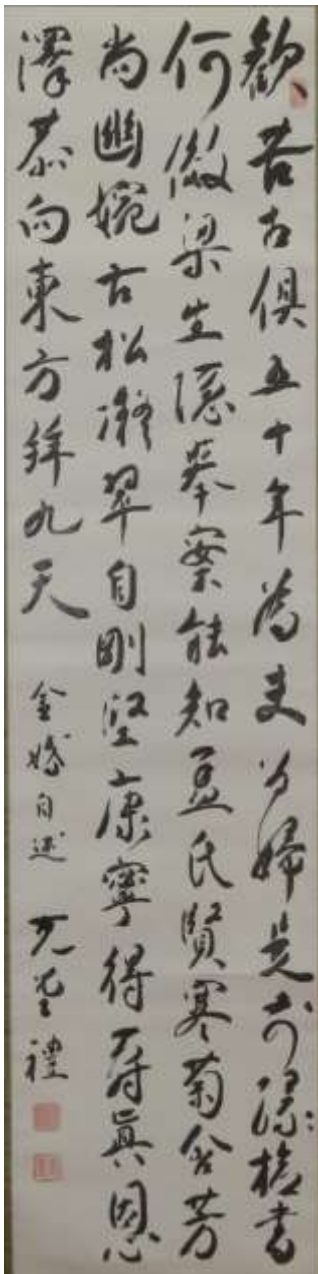 歡苦俱五十年為夫為婦是前緣書
何倣梁生隱舉案能知孟氏賢寒菊含芳
尚幽婉古松凝翠自剛堅康寧得壽眞恩
澤恭向東方拜九天
金婚自述
禮